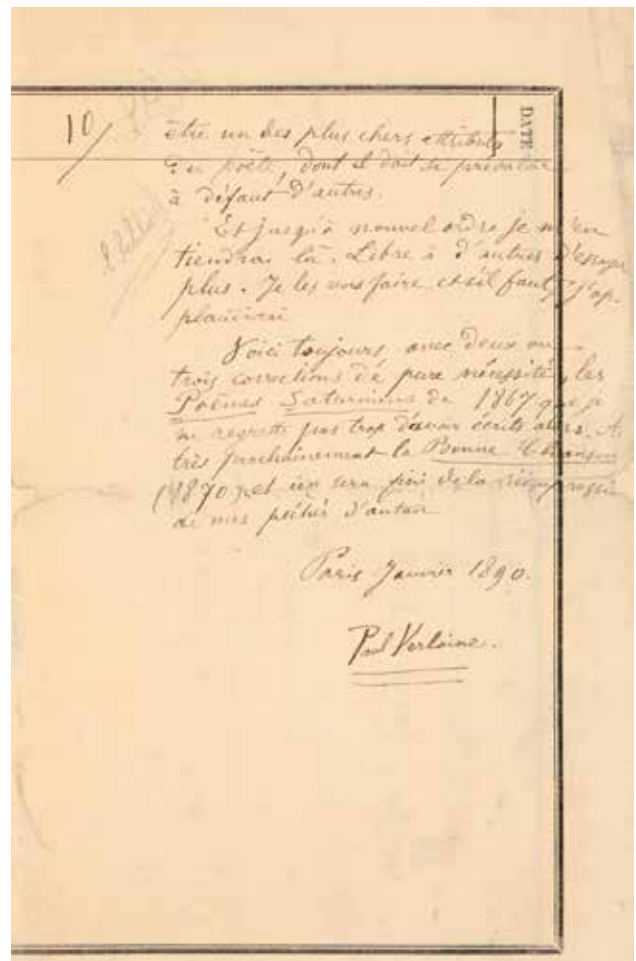 10/
DATE
être un des plus chers attributs
du poète, dont il doit se prévaloir
à défaut d'autres.
Et jusqu'à nouvel ordre je m'en
tiendrai là. Libre à d'autres d'essayer
plus. Je les vois faire et s'il faut, j'ap-
plaudirai
Voici toujours, avec deux ou
trois corrections de pure nécessité, les
Poèmes Saturniens de 1867 que je
ne regrette pas trop d'avoir écrits alors. A
très prochainement la Bonne Chanson
(1870) et c'en sera fini de la réimpression
de mes péchés d'antan
Paris Janvier 1890.
Paul Verlaine.